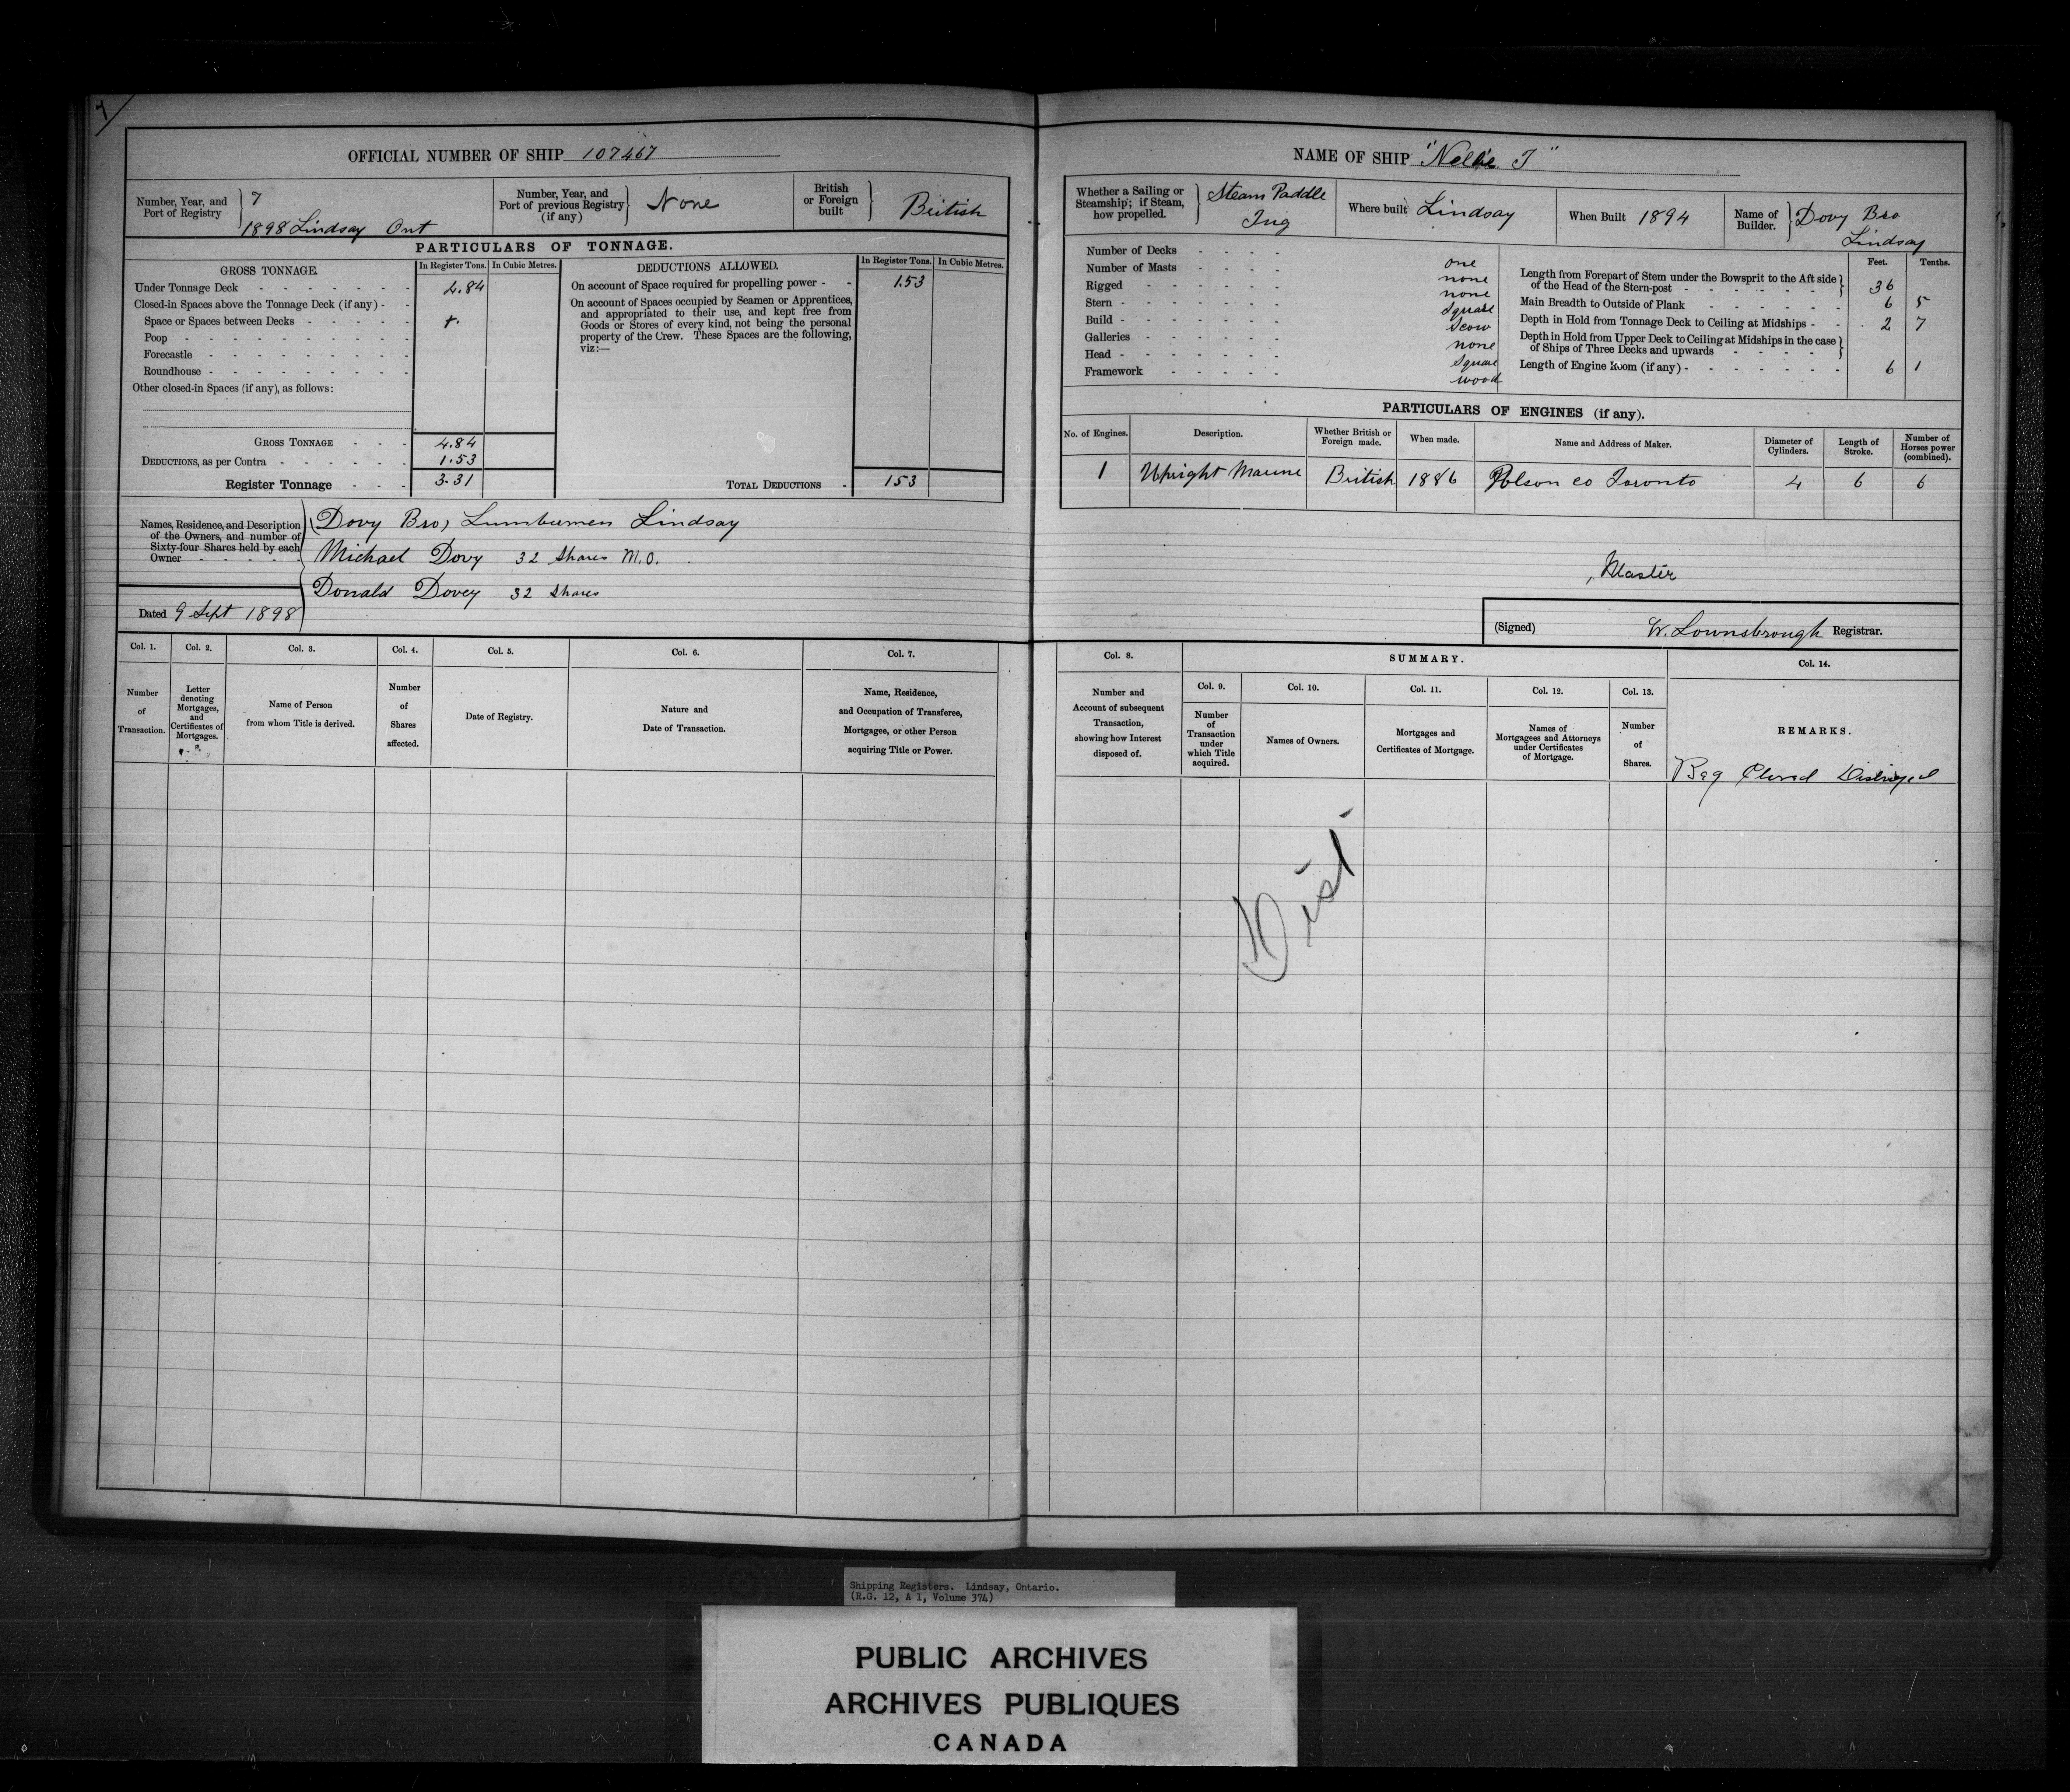 7
OFFICIAL NUMBER OF SHIP 107467
Number, Year, and Port of Registry
7
1898 Lindsay Ont
Number, Year, and Port of previous Registry (if any)
None
British or Foreign built
British
PARTICULARS OF TONNAGE.
GROSS TONNAGE.
In Register Tons. In Cubic Metres.
DEDUCTIONS ALLOWED.
In Register Tons. In Cubic Metres.
Under Tonnage Deck 4.84
Closed-in Spaces above the Tonnage Deck (if any)
Space or Spaces between Decks
Poop
Forecastle
Roundhouse
Other closed-in Spaces (if any), as follows:
On account of Space required for propelling power 1.53
On account of Spaces occupied by Seamen or Apprentices,
and appropriated to their use, and kept free from
Goods or Stores of every kind, not being the personal
property of the Crew. These Spaces are the following,
viz:—
GROSS TONNAGE 4.84
DEDUCTIONS, as per Contra 1.53
Register Tonnage 3.31
TOTAL DEDUCTIONS 1.53
Names, Residence, and Description
of the Owners, and number of
Sixty-four Shares held by each
Owner
Dovy Bro, Lumbermen Lindsay
Michael Dovy 32 Shares M.O.
Donald Dovey 32 Shares
Dated 9 Sept 1898
Col. 1. Col. 2. Col. 3. Col. 4. Col. 5. Col. 6. Col. 7.
Number of Transaction.
Letter denoting Mortgages, and Certificates of Mortgages.
Name of Person from whom Title is derived.
Number of Shares affected.
Date of Registry.
Nature and Date of Transaction.
Name, Residence, and Occupation of Transferee, Mortgagee, or other Person acquiring Title or Power.
NAME OF SHIP "Nellie T"
Whether a Sailing or Steamship; if Steam, how propelled.
Steam Paddle
Tug
Where built Lindsay
When Built 1894
Name of Builder.
Dovy Bro
Lindsay
Number of Decks one
Number of Masts none
Rigged none
Stern Square
Build Scow
Galleries none
Head Square
Framework wood
Feet. Tenths.
Length from Forepart of Stem under the Bowsprit to the Aft side
of the Head of the Stern-post 36
Main Breadth to Outside of Plank 6 5
Depth in Hold from Tonnage Deck to Ceiling at Midships 2 7
Depth in Hold from Upper Deck to Ceiling at Midships in the case
of Ships of Three Decks and upwards
Length of Engine Room (if any) 6 1
PARTICULARS OF ENGINES (if any).
No. of Engines. Description. Whether British or Foreign made. When made. Name and Address of Maker. Diameter of Cylinders. Length of Stroke. Number of Horses power (combined).
1 Upright Marine British 1886 Polson co Toronto 4 6 6
, Master
(Signed) W. Lownsbrough Registrar.
Col. 8. SUMMARY. Col. 14.
Col. 9. Col. 10. Col. 11. Col. 12. Col. 13.
Number and Account of subsequent Transaction, showing how Interest disposed of.
Number of Transaction under which Title acquired.
Names of Owners.
Mortgages and Certificates of Mortgage.
Names of Mortgagees and Attorneys under Certificates of Mortgage.
Number of Shares.
REMARKS.
Reg Closed Distroyed
Dist.
Shipping Registers. Lindsay, Ontario.
(R.G. 12, A 1, Volume 374)
PUBLIC ARCHIVES
ARCHIVES PUBLIQUES
CANADA